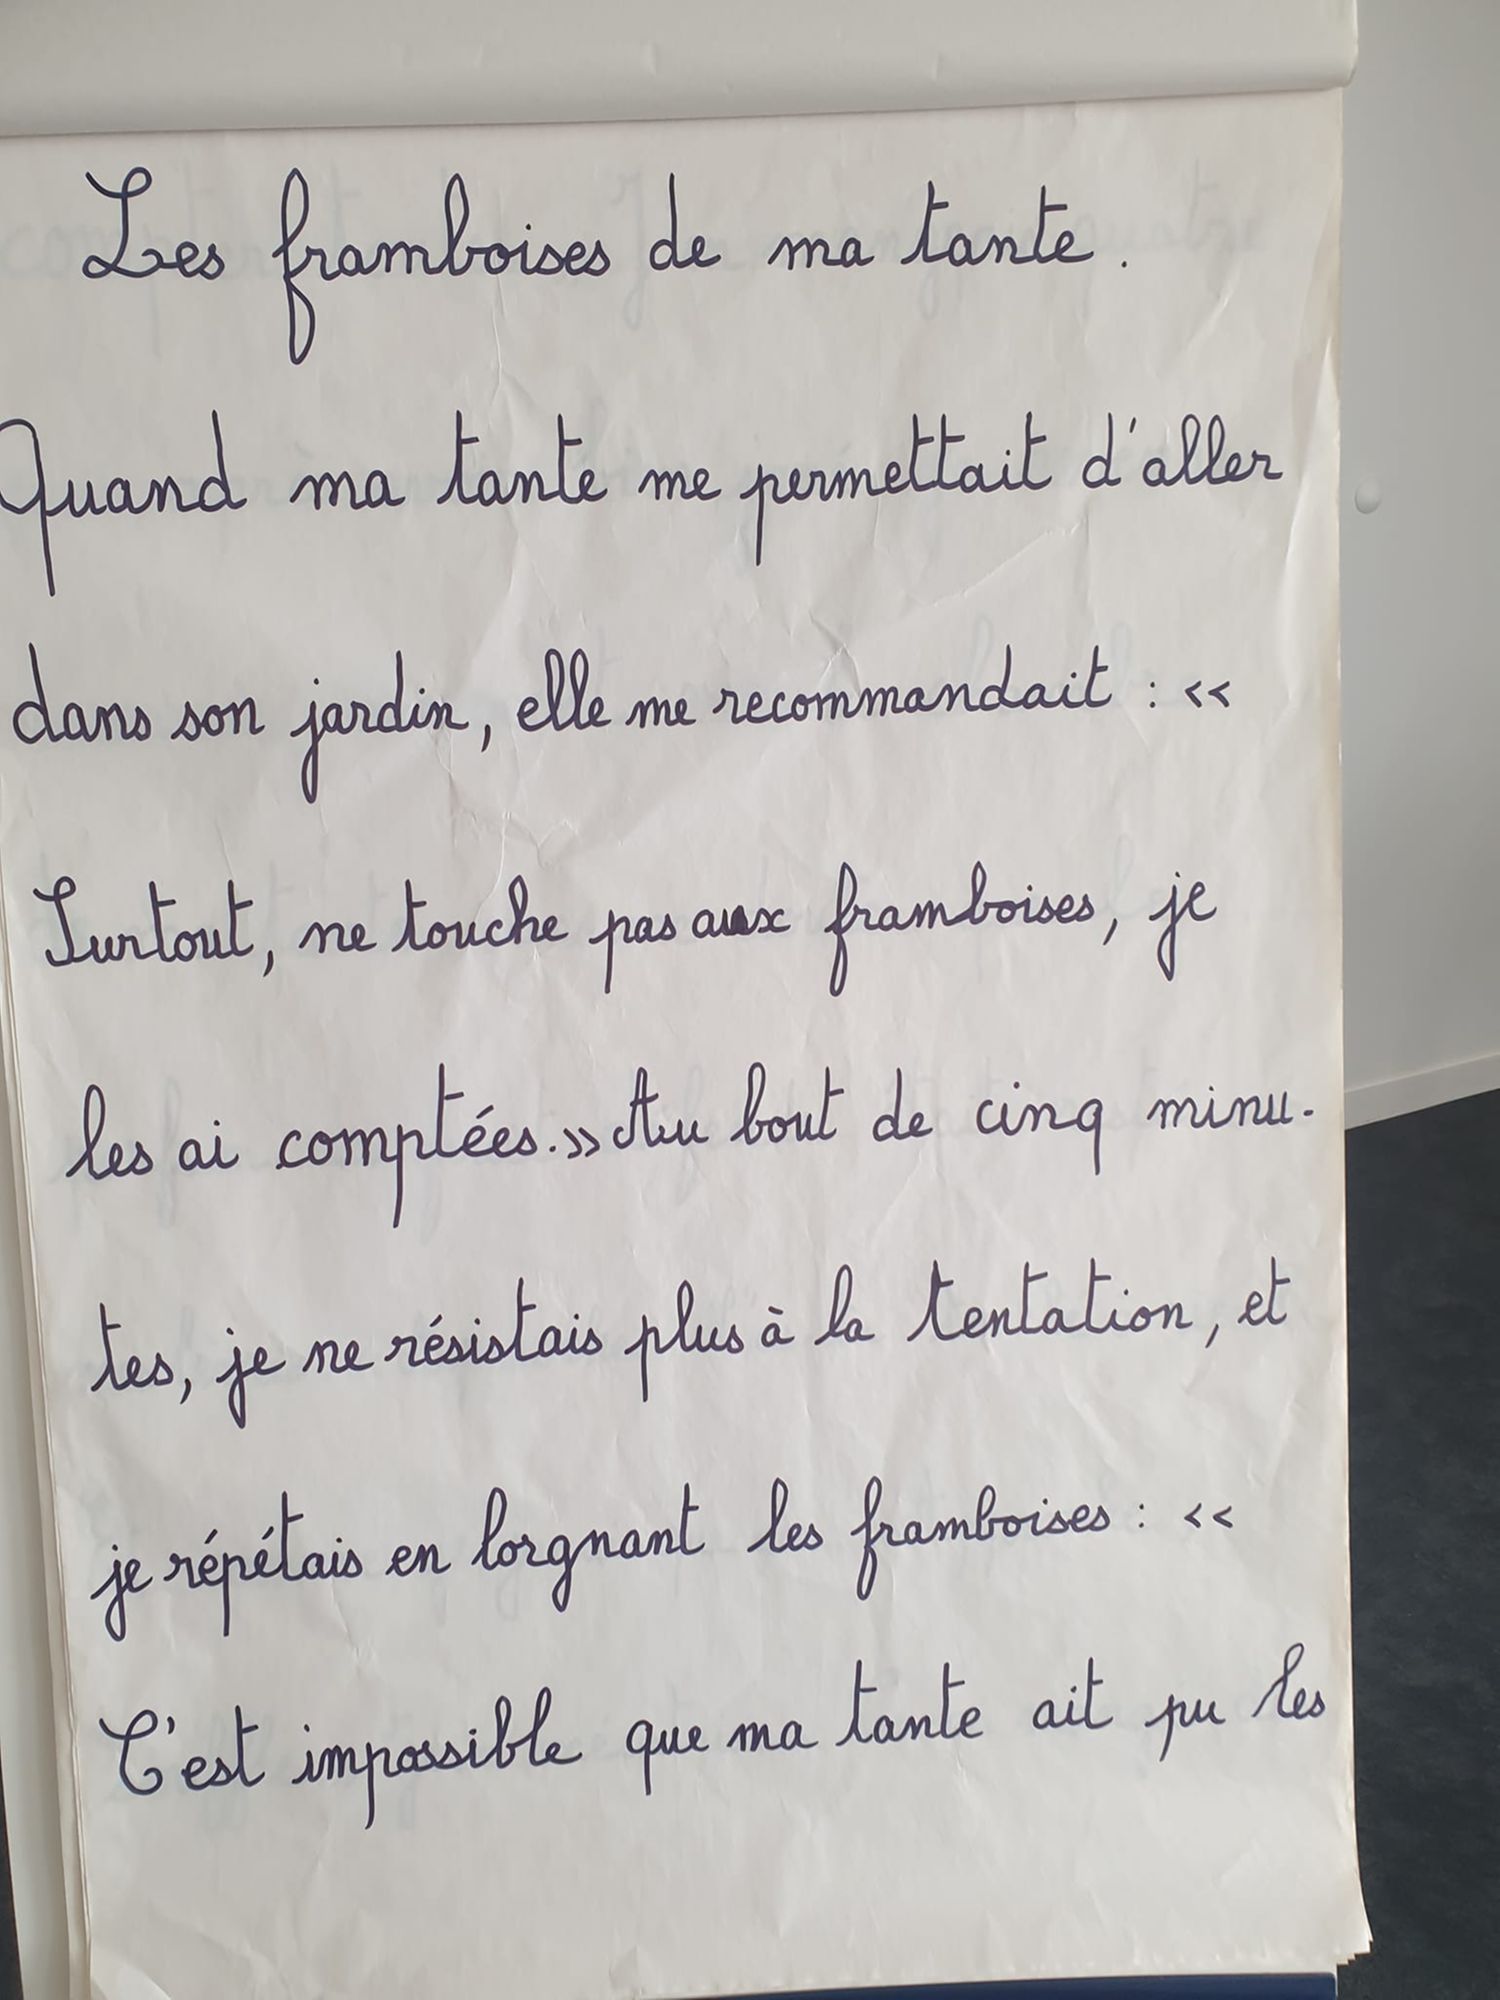 Les framboises de ma tante.
Quand ma tante me permettait d'aller
dans son jardin, elle me recommandait : <<
Surtout, ne touche pas aux framboises, je
les ai comptées.>> Au bout de cinq minu-
tes, je ne résistais plus à la tentation, et
je répétais en lorgnant les framboises : <<
C'est impossible que ma tante ait pu les